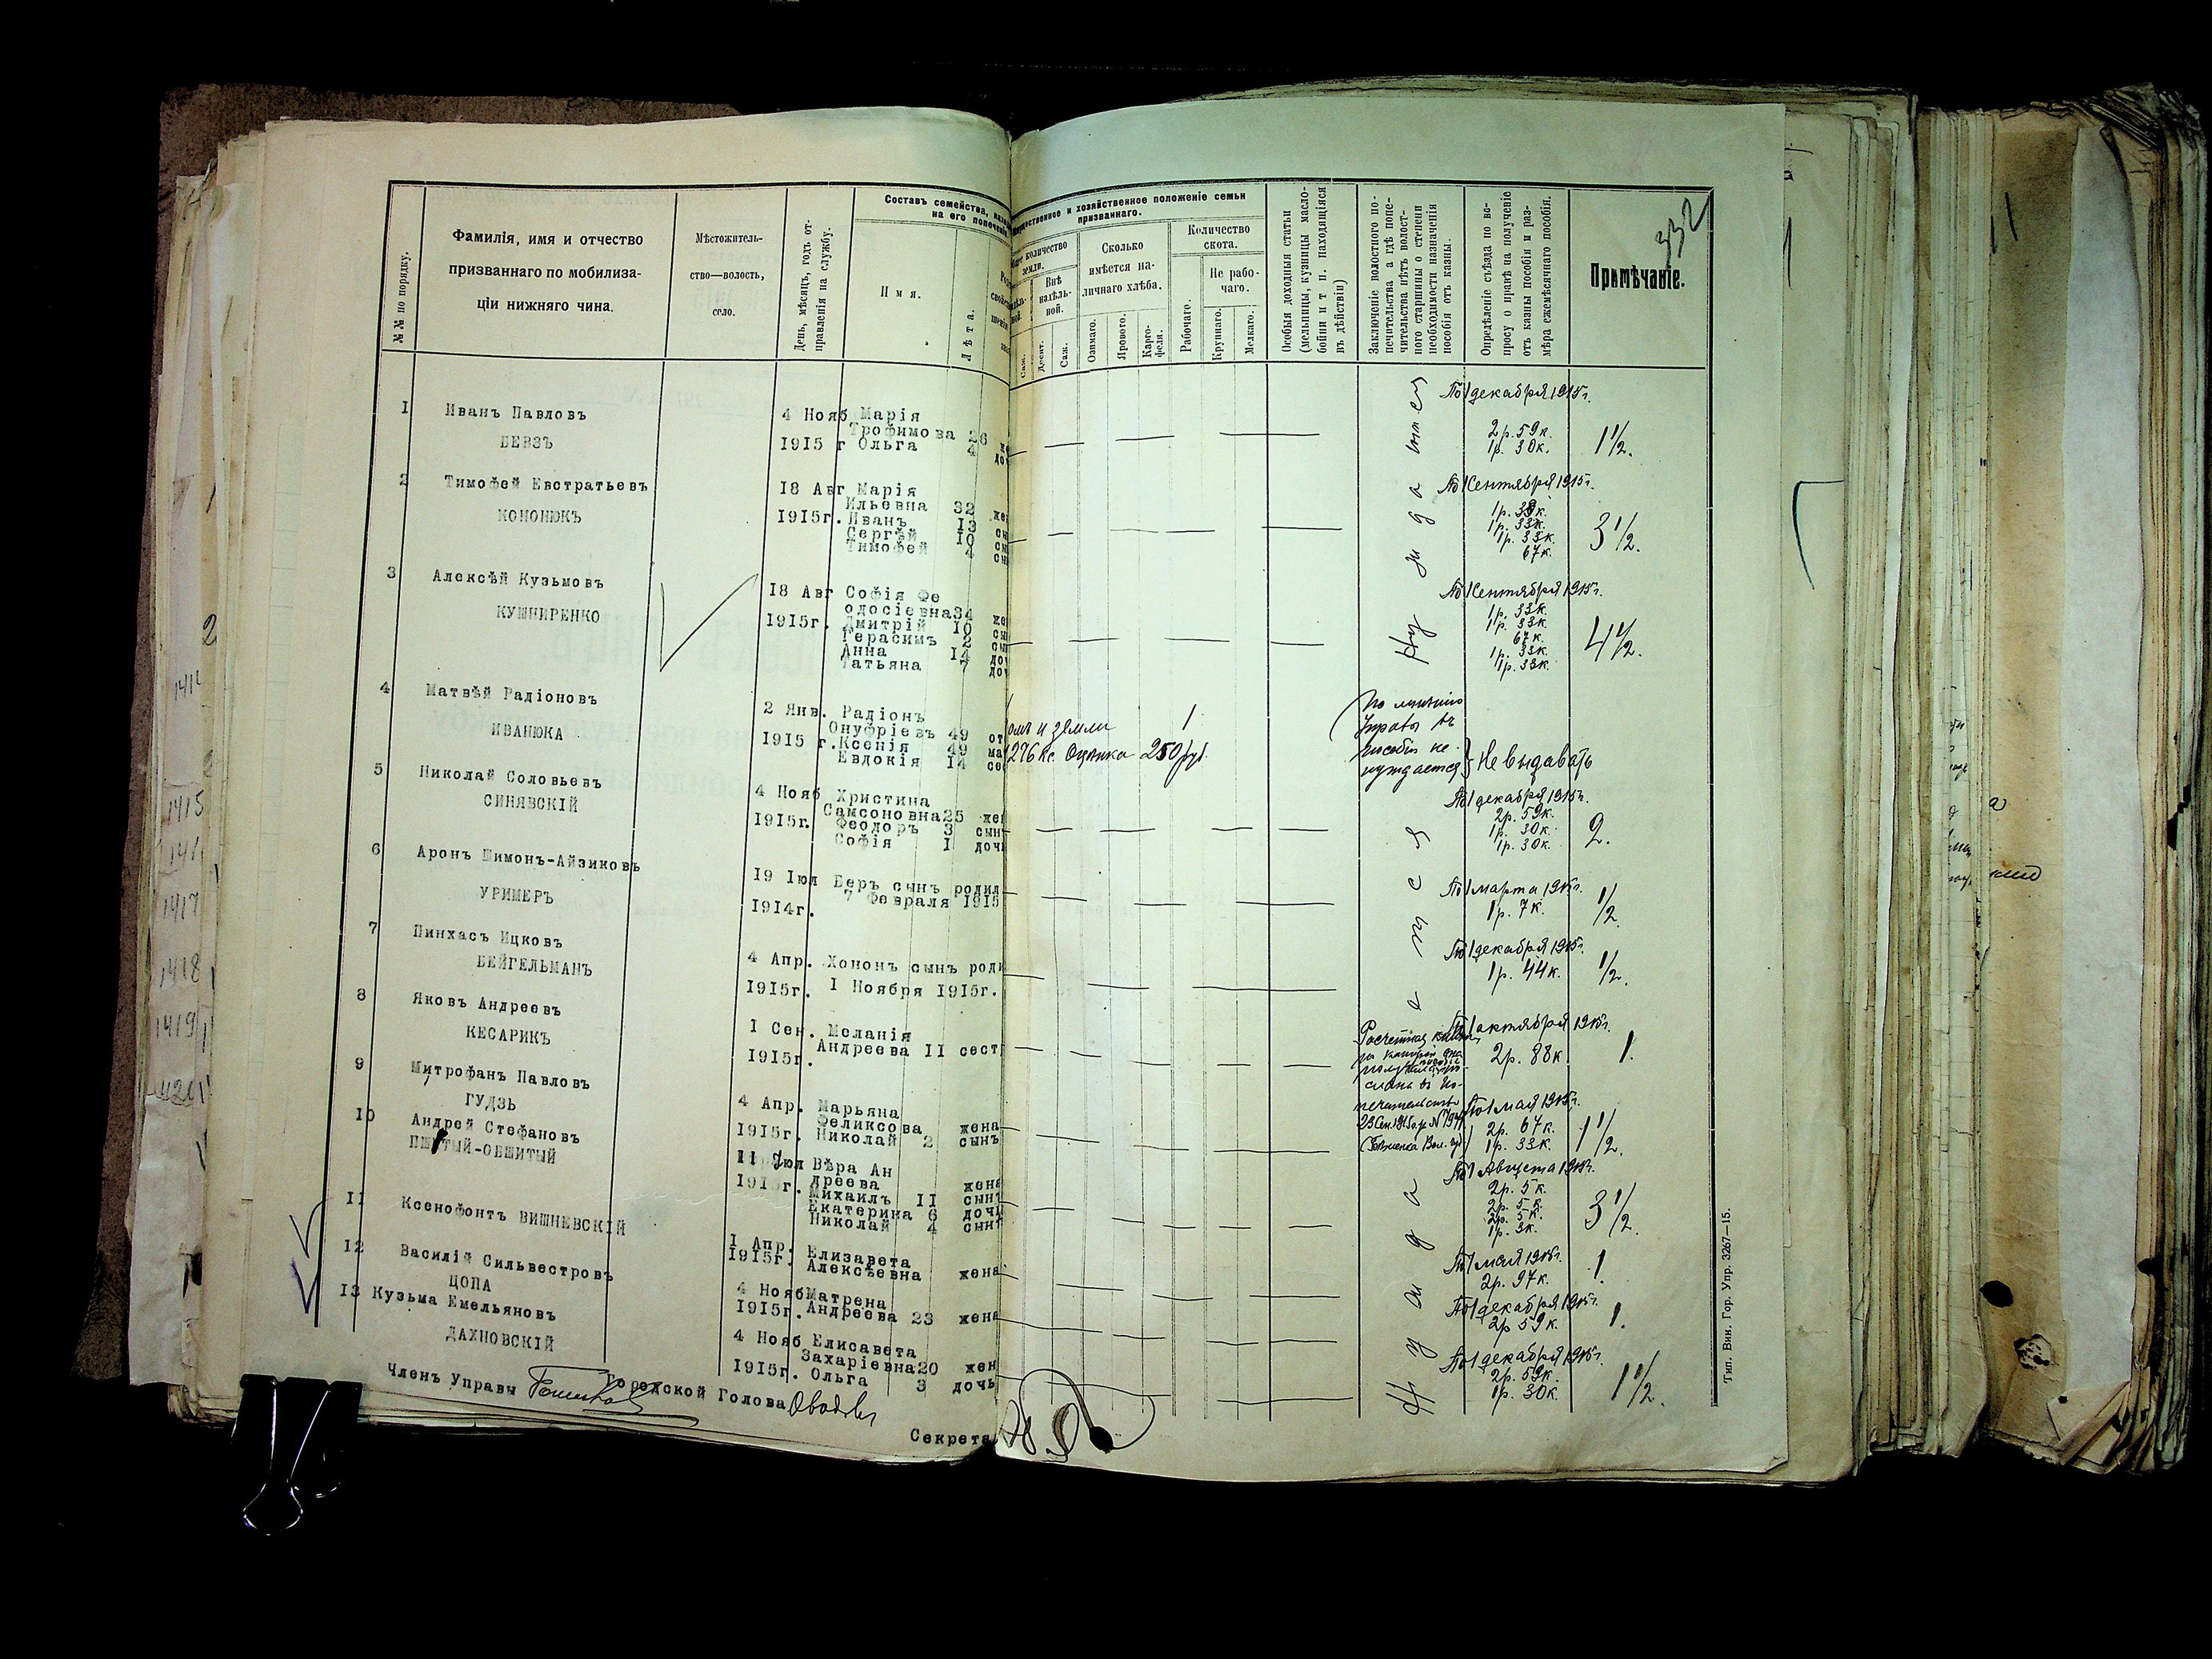 332
№№ по порядку.
Фамилія, имя и отчество
призваннаго по мобилиза-
ціи нижняго чина.
Мѣстожитель-
ство—волость,
село.
День, мѣсяцъ, годъ от-
правленія на службу.
Составъ семейства,
на его попеченіи
Имя.
Лѣта.
хозяйственное положеніе семьи
призваннаго.
количество
земли.
Внѣ
надѣль-
ной.
Саж.
Десят.
Саж.
Сколько
имѣется на-
личнаго хлѣба.
Озимаго.
Ярового.
Карто-
феля.
Количество
скота.
Рабочаго.
Не рабо-
чаго.
Крупнаго.
Мелкаго.
Особыя доходныя статьи
(мельницы, кузницы масло-
бойни и т п. находящіяся
въ дѣйствіи)
Заключеніе волостного по-
печительства а гдѣ попе-
чительства нѣтъ волост-
ного старшины о степени
необходимости назначенія
пособія отъ казны.
Опредѣленіе съѣзда по во-
просу о правѣ на полученіе
отъ казны пособія и раз-
мѣра ежемѣсячнаго пособія.
Примѣчаніе.
1
Иванъ Павловъ
БЕВЗЪ
4 Нояб
1915 г
Марія
Трофимова 26
Ольга 4
По 1 декабря 1915г.
2р. 59к.
1р. 30к.
1 1/2.
2
Тимофей Евстратьевъ
КОНОНЮКЪ
18 Авг
1915г.
Марія
Ильевна 32
Иванъ 13
Сергѣй 10
Тимофей 4
По 1 Сентября 1915г.
1р. 33к.
1р. 33к.
1р. 33к.
67к.
3 1/2.
3
Алексѣй Кузьмовъ
КУШНИРЕНКО
18 Авг
1915г.
Софія Фе
одосіевна 34
Дмитрій 10
Герасимъ 2
Анна 14
Татьяна 7
Нуждается
По 1 Сентября 1915г.
1р. 33к.
1р. 33к.
67к.
1р. 33к.
1р. 33к.
4 1/2.
4
Матвѣй Радіоновъ
ИВАНЮКА
2 Янв.
1915 г.
Радіонъ
Онуфріевъ 49
Ксенія 49
Евдокія 14
и земли
276 кс. Оцѣнка 250 руб.
1
По мнѣнію
Управы въ
пособіи не
нуждается
Не выдавать
5
Николай Соловьевъ
СИНЯВСКІЙ
4 Нояб
1915г.
Христина
Самсоновна 25 жен
Феодоръ 3 сынъ
Софія 1 дочь
По 1 декабря 1915г.
2р. 59к.
1р. 30к.
1р. 30к.
2.
6
Аронъ Шимонъ-Айзиковъ
УРИМЕРЪ
19 Іюл
1914г.
Беръ сынъ родил
7 Февраля 1915
По 1 марта 1915г.
1р. 7к.
1/2
7
Пинхасъ Ицковъ
БЕЙГЕЛЬМАНЪ
4 Апр.
1915г.
Хононъ сынъ роди
1 Ноября 1915г.
По 1 декабря 1915г.
1р. 44к.
1/2.
8
Яковъ Андреевъ
КЕСАРИКЪ
1 Сен.
1915г.
Меланія
Андреева 11 сест
Расчетная книжка
По 1 октября 1915г.
2р. 88к
1.
9
Митрофанъ Павловъ
ГУДЗЬ
4 Апр.
1915г.
Марьяна
Феликсова жена
Николай 2 сынъ
По 1 мая 1915г.
2р. 67к.
1р. 33к.
1 1/2.
10
Андрей Стефановъ
ПШИТЫЙ-ОБШИТЫЙ
11 Іюл
1915г.
Вѣра Ан
дреева жена
Михаилъ 11 сынъ
Екатерина 6 дочь
Николай 4 сынъ
Нуждается
По 1 Августа 1915г.
2р. 5к.
2р. 5к.
2р. 5к.
1р. 3к.
3 1/2.
11
Ксенофонтъ ВИШНЕВСКІЙ
1 Апр.
1915г.
Елизавета
Алексѣевна жена
По 1 мая 1915г.
2р. 97к.
1.
12
Василій Сильвестровъ
ЦОПА
4 Нояб
1915г.
Матрена
Андреева 23 жена
По 1 декабря 1915г.
2р 59к.
1.
13
Кузьма Емельяновъ
ДАХНОВСКІЙ
4 Нояб
1915г.
Елисавета
Захаріевна 20 жен
Ольга 3 дочь
По 1 декабря 1915г.
2р. 59к.
1р. 30к.
1 1/2.
Членъ Управы
Городской Голова
Секрета
Тип. Вин. Гор. Упр. 3267—15.